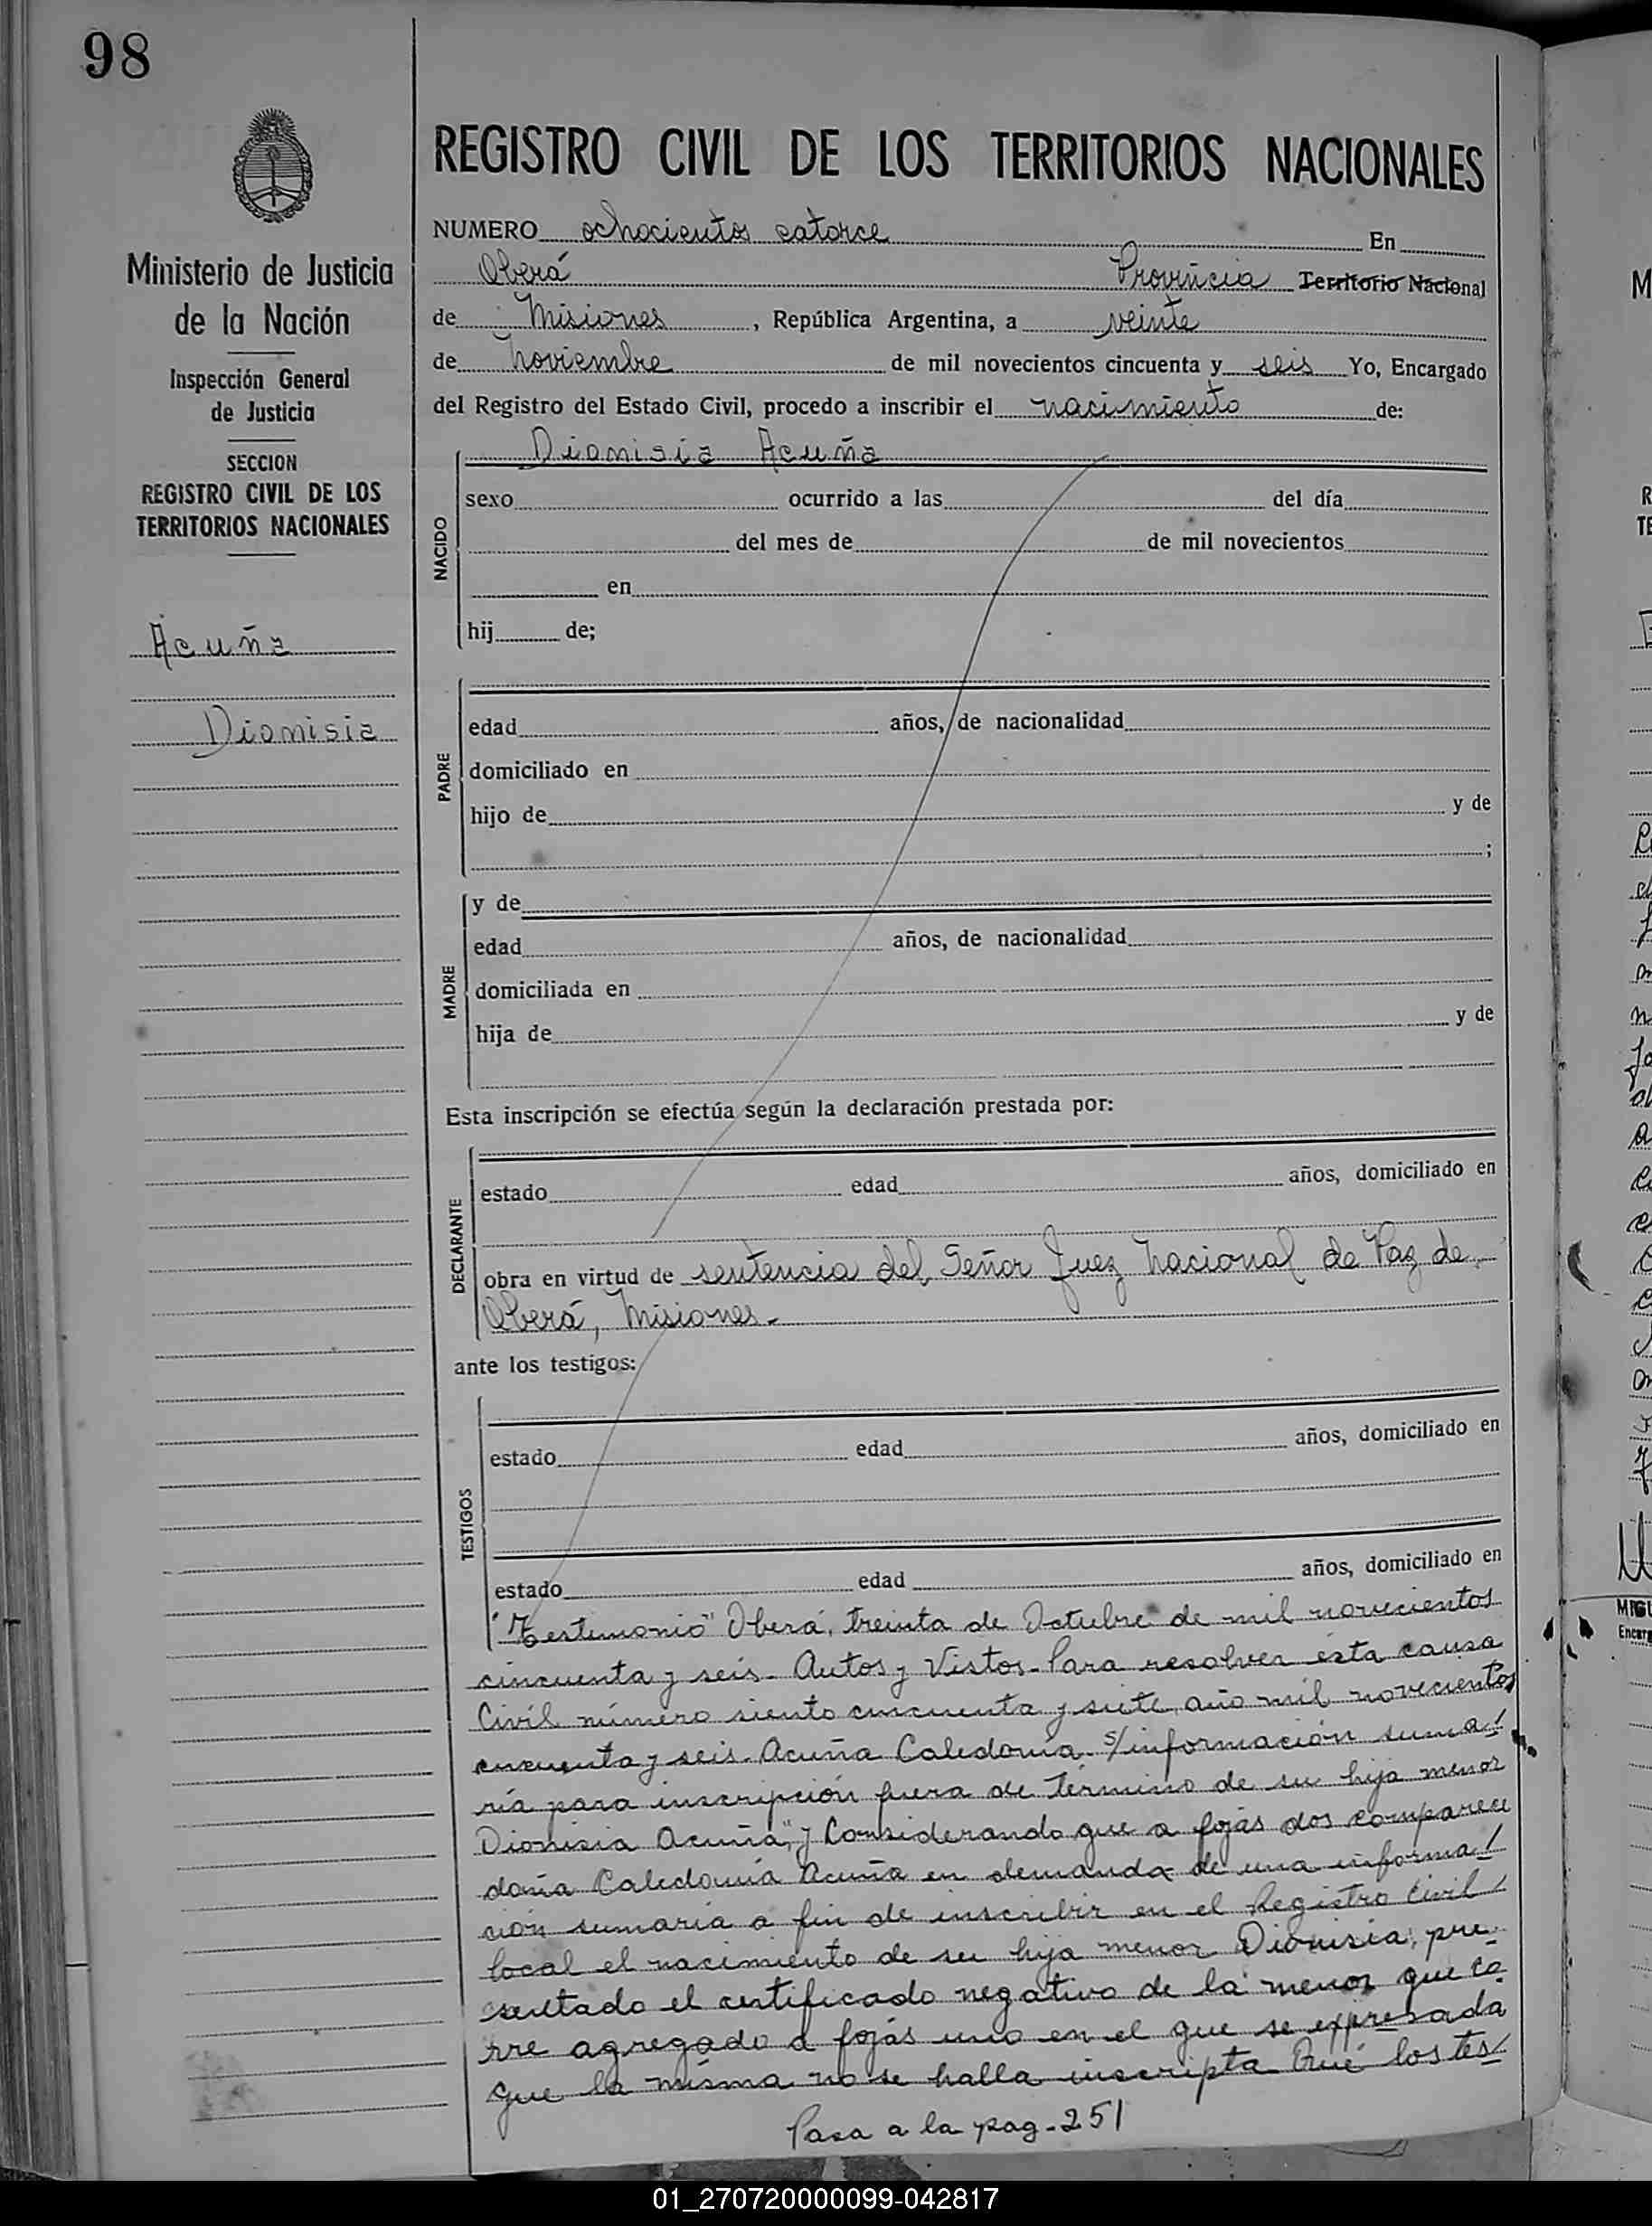 98
Ministerio de Justicia
de la Nación
Inspección General
de Justicia
SECCION
REGISTRO CIVIL DE LOS
TERRITORIOS NACIONALES
Acuña
Dionisia
REGISTRO CIVIL DE LOS TERRITORIOS NACIONALES
NUMERO ochocientos catorce En
Oberá Provincia Territorio Nacional
de Misiones, República Argentina, a veinte
de Noviembre de mil novecientos cincuenta y seis Yo, Encargado
del Registro del Estado Civil, procedo a inscribir el nacimiento de:
Dionisia Acuña
NACIDO
sexo ocurrido a las del día
del mes de de mil novecientos
en
hij de;
PADRE
edad años, de nacionalidad
domiciliado en
hijo de y de
;
MADRE
y de
edad años, de nacionalidad
domiciliada en
hija de y de
Esta inscripción se efectúa según la declaración prestada por:
DECLARANTE
estado edad años, domiciliado en
obra en virtud de sentencia del Señor Juez Nacional de Paz de
Oberá, Misiones.-
ante los testigos:
TESTIGOS
estado edad años, domiciliado en
estado edad años, domiciliado en
"Testimonio" Oberá, treinta de Octubre de mil novecientos
cincuenta y seis- Autos y Vistos- Para resolver esta causa
Civil número siento cincuenta y siete, año mil novecientos
cincuenta y seis- Acuña Caledonia- s/información suma/
ria para inscripción fuera de término de su hija menor
Dionisia Acuña", y Considerando que a fojas dos comparece
doña Caledonia Acuña en demanda de una informa/
ción sumaria a fin de inscribir en el Registro Civil/
local el nacimiento de su hija menor Dionisia, pre-
sentado el certificado negativo de la menor que co-
rre agregado a fojas uno en el que se expresada
que la misma no se halla inscripta Que los tes/
Pasa a la pag-251
01_270720000099-042817